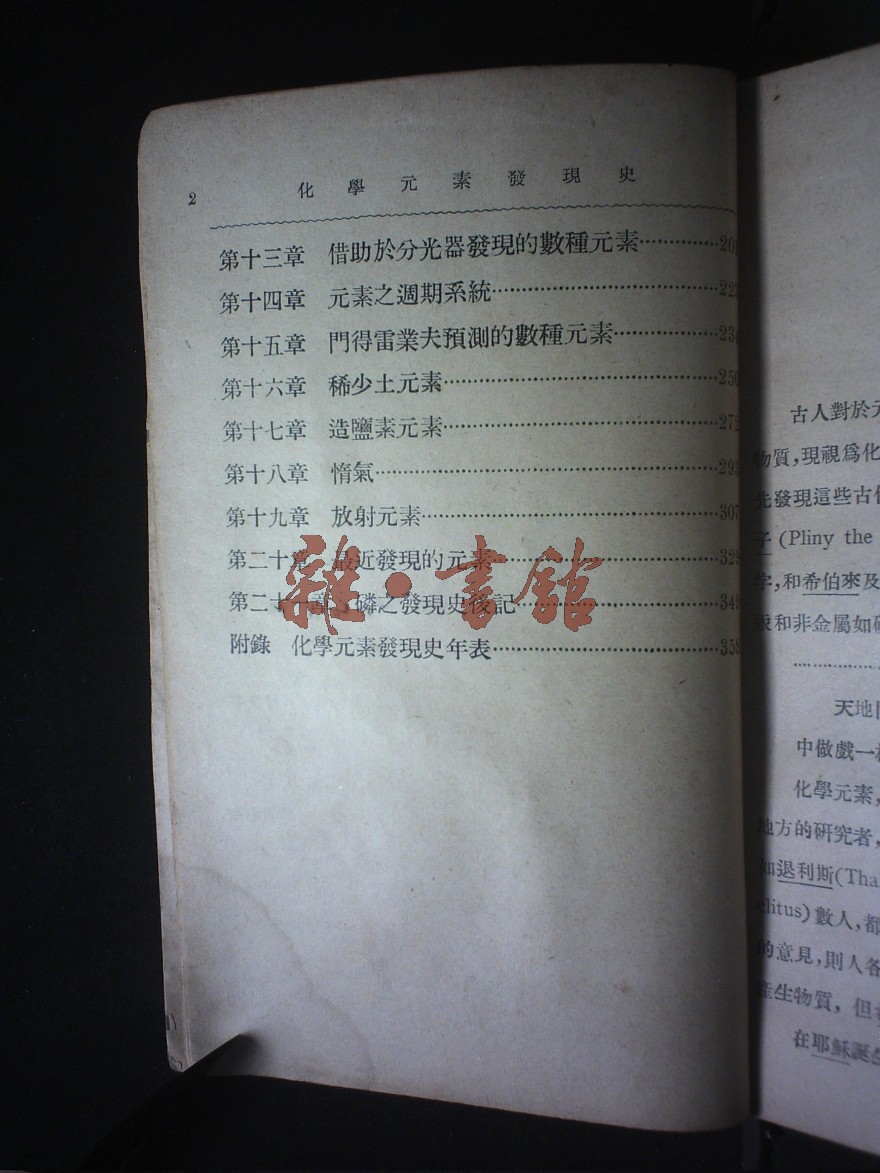 2 化學元素發現史
第十三章 借助於分光器發現的數種元素············20
第十四章 元素之週期系統····················22
第十五章 門得雷業夫預測的數種元素············23
第十六章 稀少土元素························250
第十七章 造鹽素元素························272
第十八章 惰氣····························29
第十九章 放射元素························307
第二十章 最近發現的元素····················32
第二十一章 磷之發現史後記····················349
附錄 化學元素發現史年表····················358
雜·書館
古人對於元
物質,現視爲化
先發現這些古代
子 (Pliny the
字,和希伯來及
汞和非金屬如
天地
中做戲一
化學元素,
地方的研究者,
如退利斯(Tha
clitus)數人,都
的意見,則人各
產生物質,但
在耶穌誕生